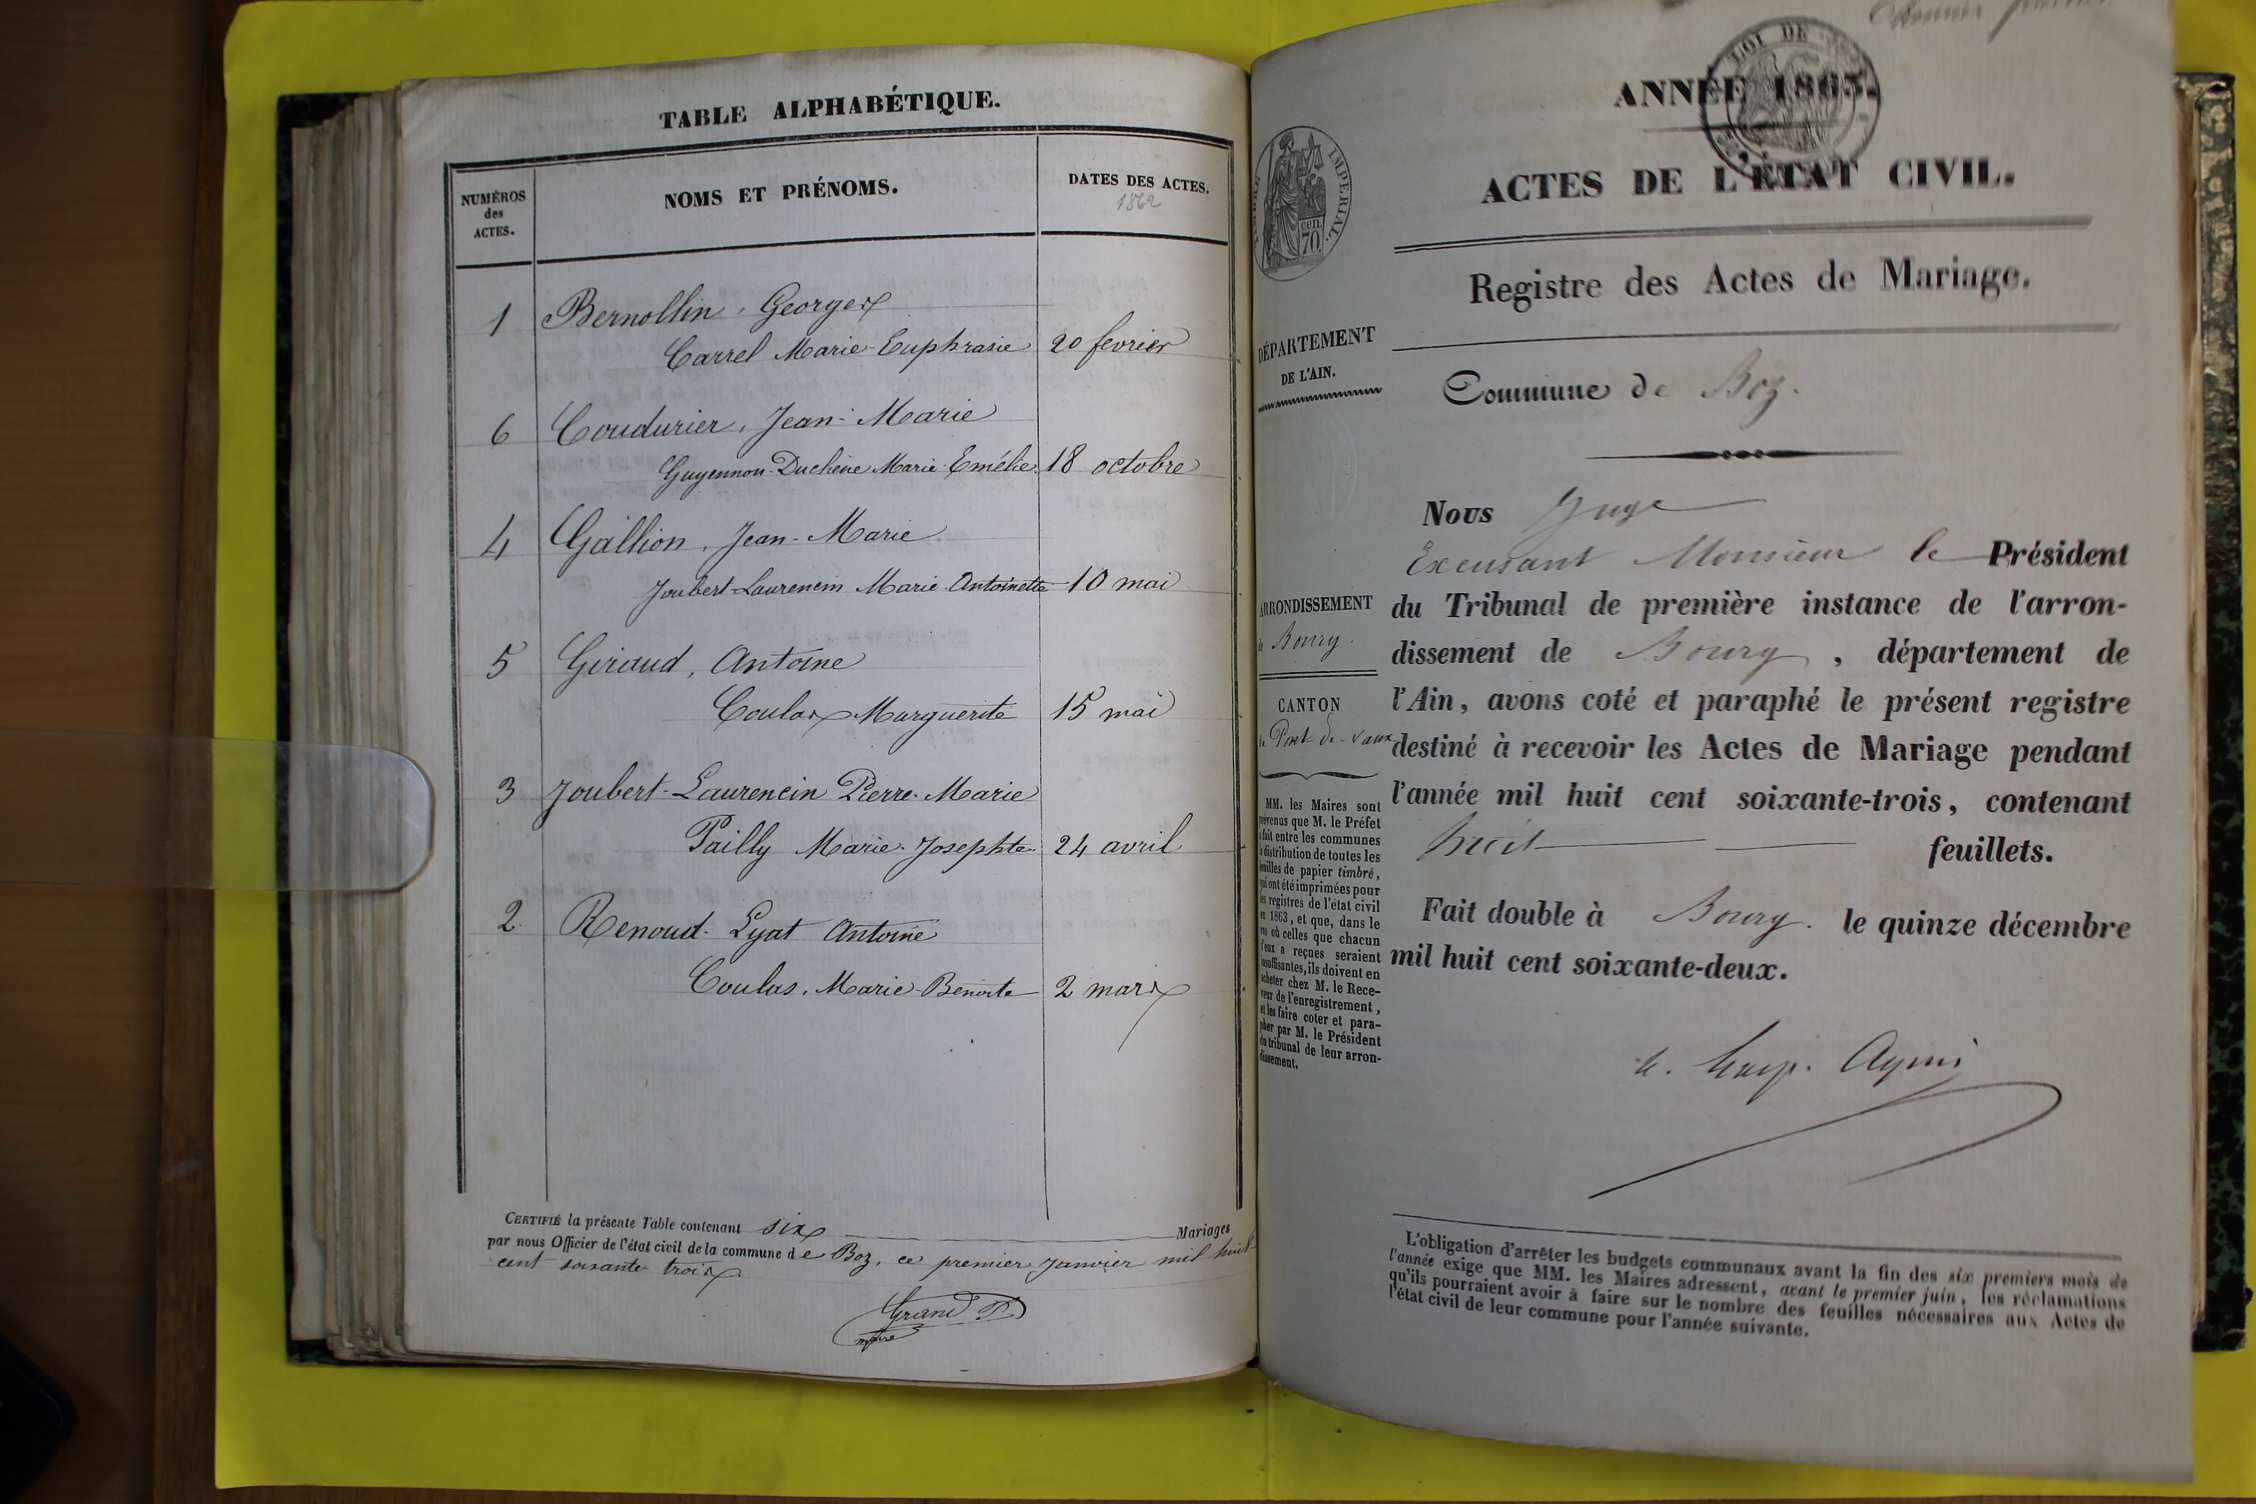 TABLE ALPHABÉTIQUE.
NUMÉROS
des
ACTES.
NOMS ET PRÉNOMS.
DATES DES ACTES.
1862
1 Bernollin, Georges
Carrel Marie-Euphrasie 20 fevrier
6 Coudurier, Jean-Marie
Guyennon-Duchène Marie-Emélie 18 octobre
4 Gallion, Jean-Marie
Joubert-Laurencin Marie-Antoinette 10 mai
5 Giraud, Antoine
Coulas Marguerite 15 mai
3 Joubert-Laurencin Pierre-Marie
Pailly Marie-Josephte 24 avril
2 Renoud-Lyat Antoine
Coulas, Marie-Benoite 2 mars
CERTIFIÉ la présente Table contenant six Mariages
par nous Officier de l'état civil de la commune de Boz, ce premier Janvier mil huit
cent soixante trois
Grand P
maire
ANNÉE 1863.
ACTES DE L'ÉTAT CIVIL.
Registre des Actes de Mariage.
TIMBRE IMPERIAL.
70 cen.
DÉPARTEMENT
DE L'AIN.
Commune de Boz.
ARRONDISSEMENT
de Bourg.
CANTON
de Pont-de-Vaux
MM. les Maires sont
prévenus que M. le Préfet
a fait entre les communes
la distribution de toutes les
feuilles de papier timbré,
qui ont été imprimées pour
les registres de l'état civil
en 1863, et que, dans le
cas où celles que chacun
d'eux a reçues seraient
insuffisantes, ils doivent en
acheter chez M. le Rece-
veur de l'enregistrement,
et les faire coter et para-
pher par M. le Président
du tribunal de leur arron-
dissement.
Nous Juge
Excusant Monsieur le Président
du Tribunal de première instance de l'arron-
dissement de Bourg, département de
l'Ain, avons coté et paraphé le présent registre
destiné à recevoir les Actes de Mariage pendant
l'année mil huit cent soixante-trois, contenant
huit feuillets.
Fait double à Bourg. le quinze décembre
mil huit cent soixante-deux.
L'obligation d'arrêter les budgets communaux avant la fin des six premiers mois de
l'année exige que MM. les Maires adressent, avant le premier juin, les réclamations
qu'ils pourraient avoir à faire sur le nombre des feuilles nécessaires aux Actes de
l'état civil de leur commune pour l'année suivante.